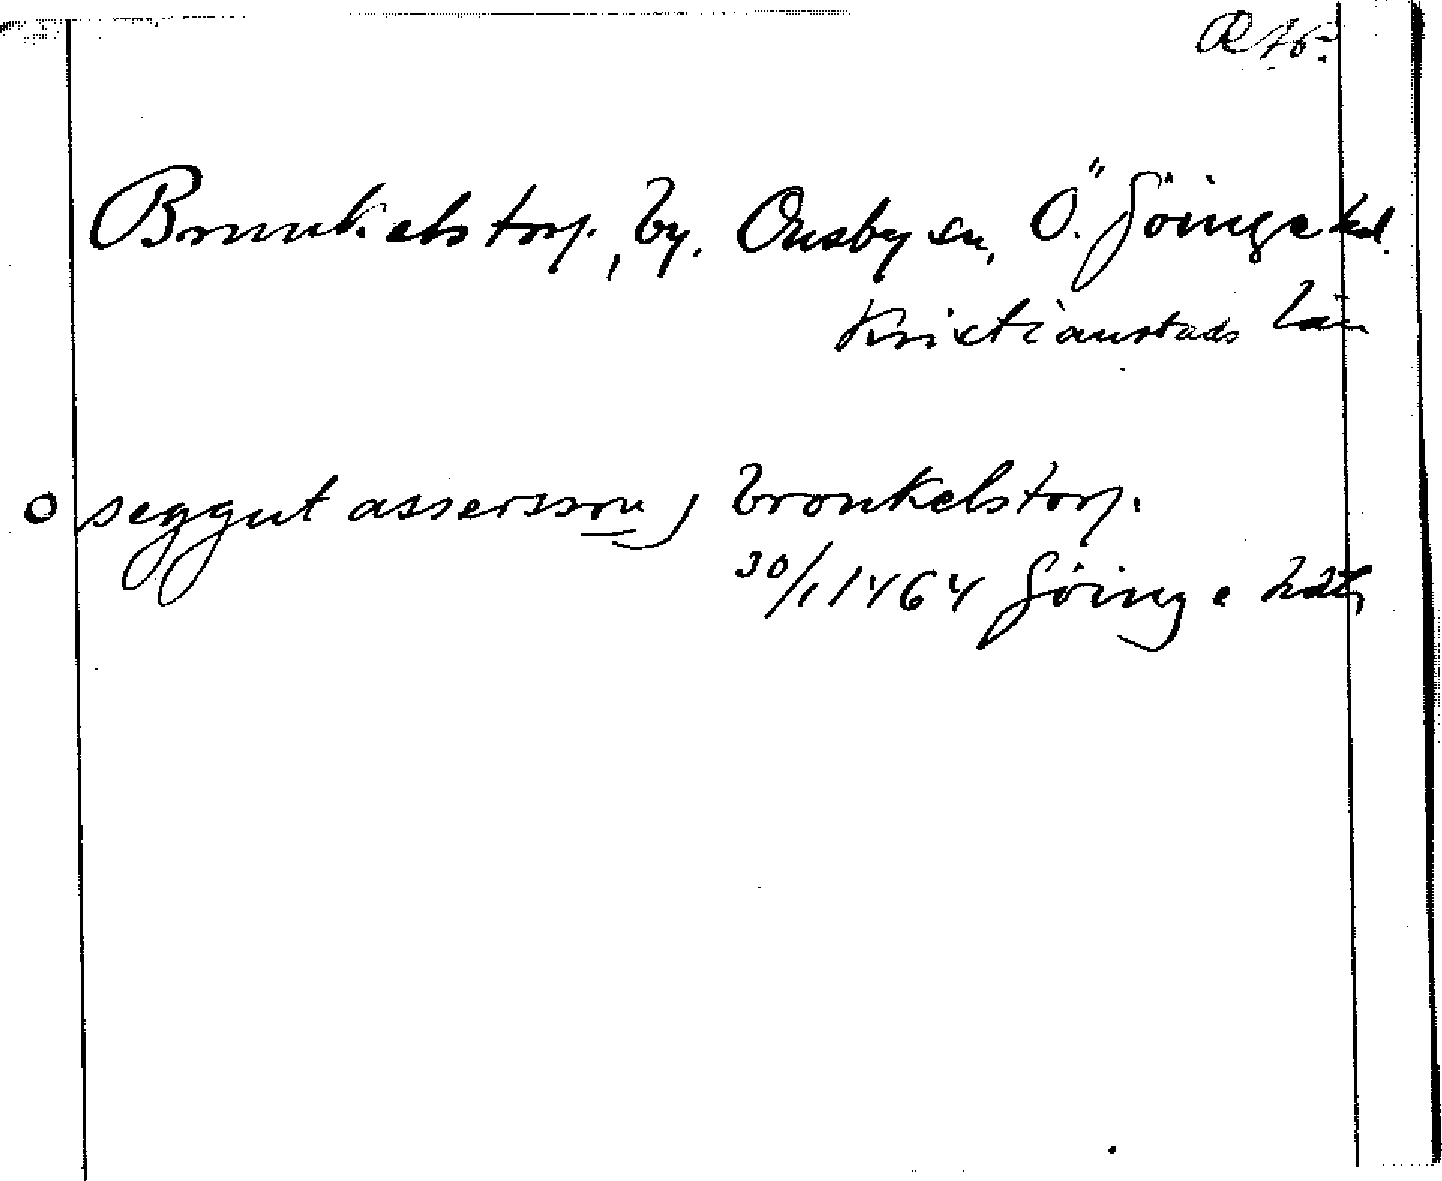 Brunkelstorp, by. Ousby sn, Ö. Göinge hd.
Kristianstads län
seggut assersson j bronkelstorp.
30/1 1464 Göinge